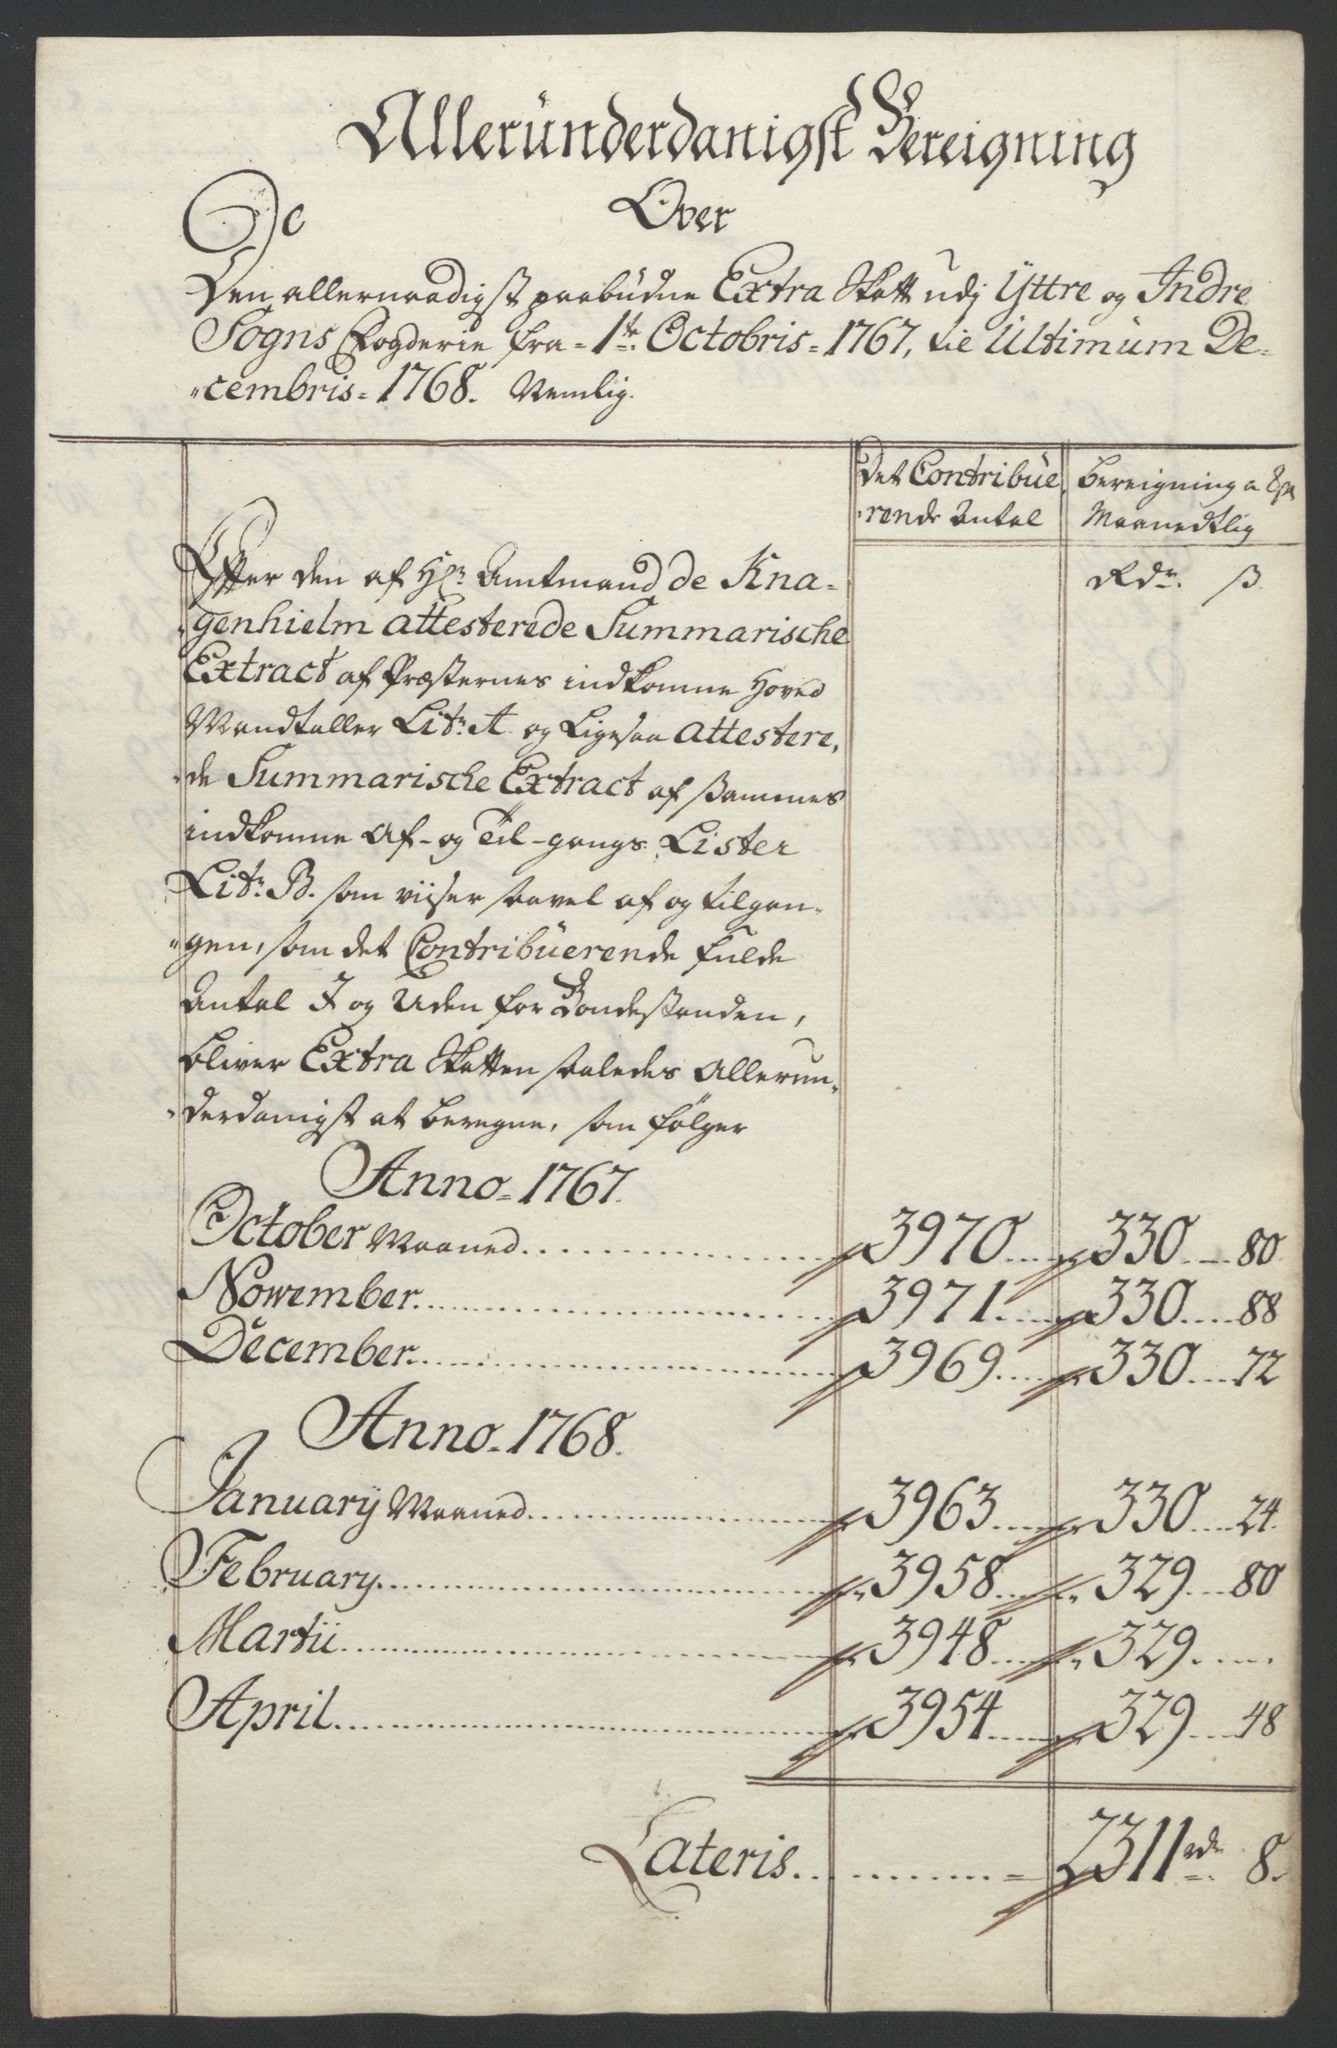 Alleründerdanigst Bereigning
Over
De
Den allernaadigst paabüdne Extra Skatt udj Yttre og Indre
Sogns Fogderie fra 1te. Octobris 1767, til Ultimum De-
cembris 1768. Nemlig.
Det Contribüe
rende Antal
Bereigning a 8 ß
Maanedtlig
Rdr. ß
Efter den af Hr. Amtmand de Kna-
genhielm attesterede Summarische
Extract af Præsternes indkomne Hoved
Mandtaller Litr. A og Ligesaa attestere,
de Summarische Extract af sammes
indkomne Af- og Til-gangs Lister
Litr. B. som viiser saavel af og tilgan-
gen, som det Contribüerende fulde
Antal J og Uden for Bondestanden,
bliver Extra Skatten saaledes Allerun-
derdanigst at beregne, som følger
Anno 1767.
October Maaned 3970 330 80
Nowember 3971 330 88
December 3969 330 72
Anno 1768.
January Maaned 3963 330 24.
February 3958 329 80
Martii 3948 329
April 3954 329 48
Lateris 2311 rdr. 8.